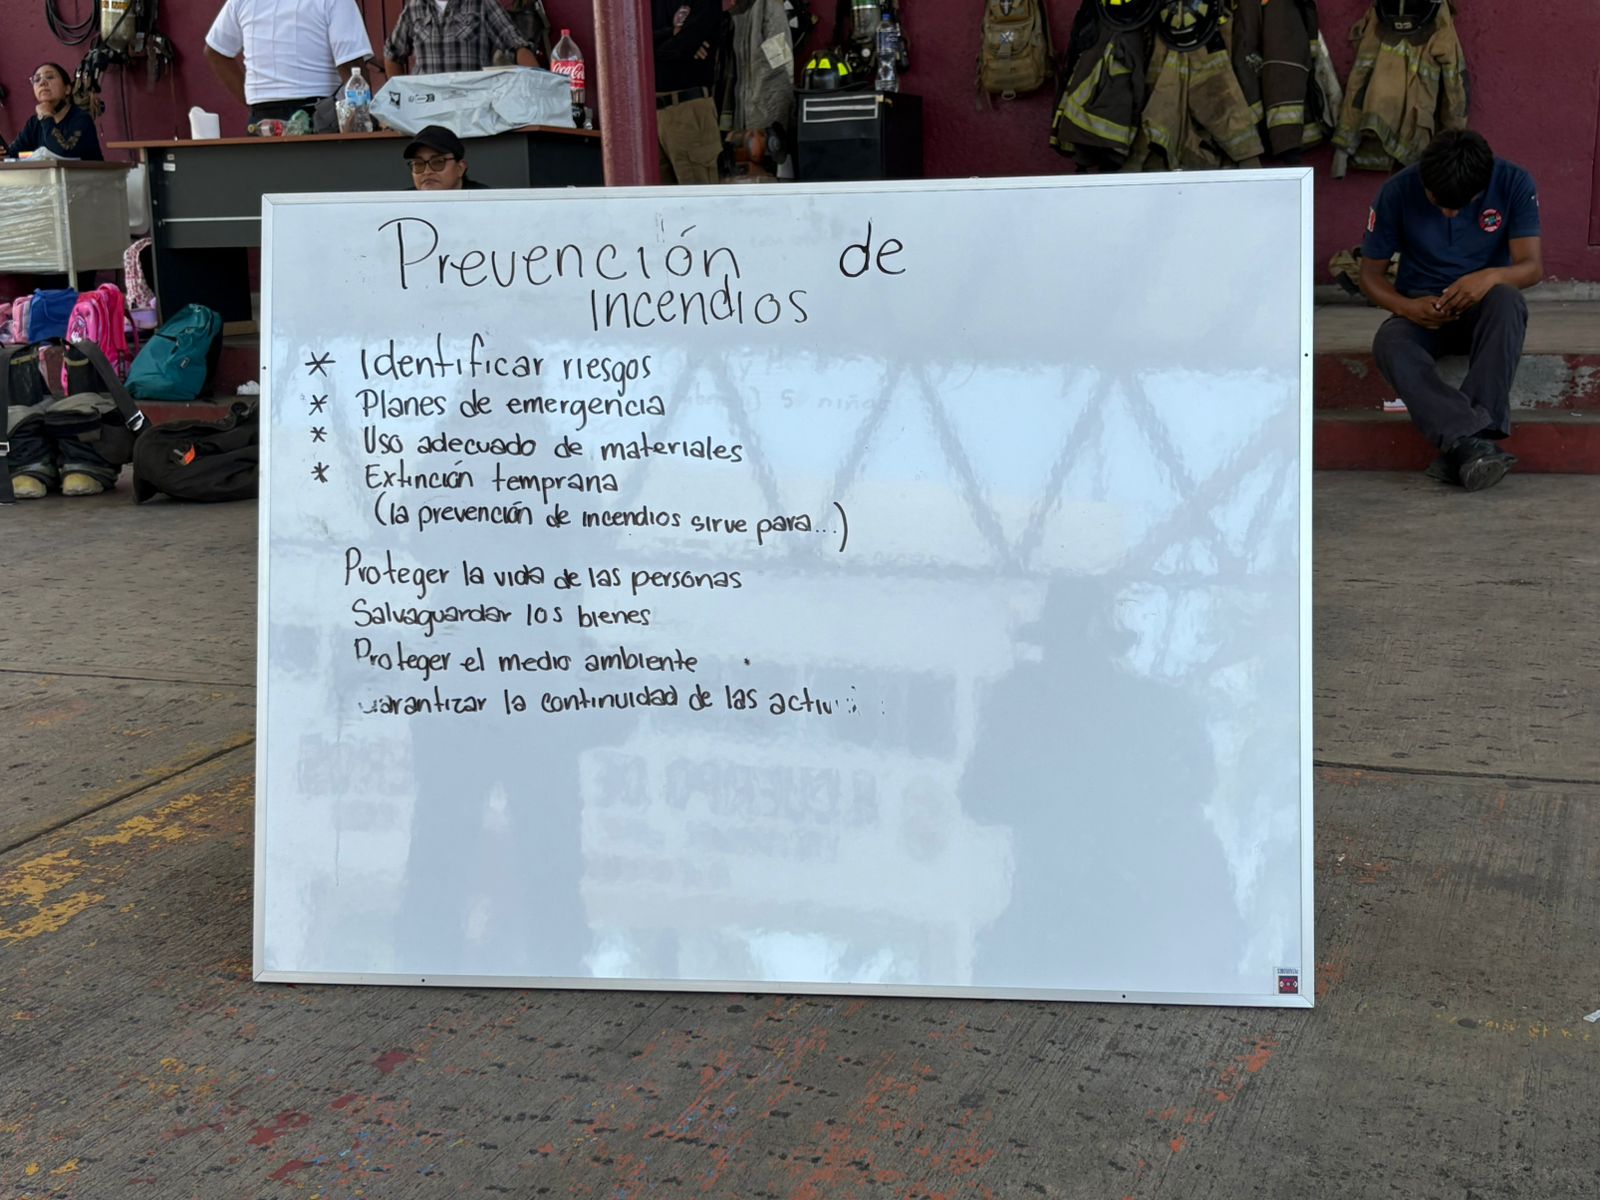 Prevención de
incendios
* Identificar riesgos
* Planes de emergencia
* Uso adecuado de materiales
* Extinción temprana
(la prevención de incendios sirve para...)
Proteger la vida de las personas
Salvaguardar los bienes
Proteger el medio ambiente
garantizar la continuidad de las activi
Coca-Cola